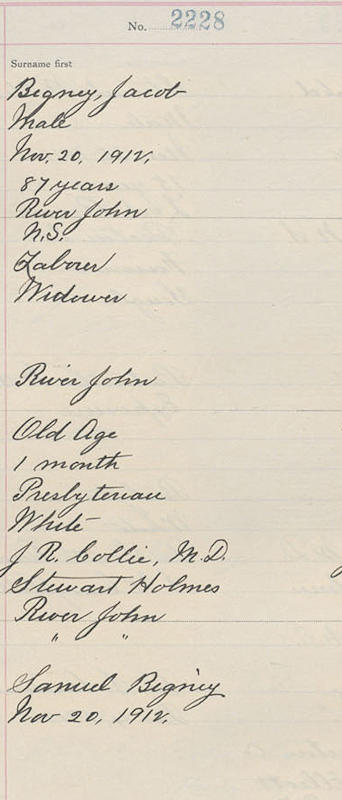 No. 2228
Surname first
Bigney, Jacob
Male
Nov. 20, 1912.
87 years
River John
N.S.
Laborer
Widower
River John
Old Age
1 month
Presbyterian
White
J R. Collie, M.D.
Stewart Holmes
River John
" "
Samuel Bigney
Nov 20, 1912.